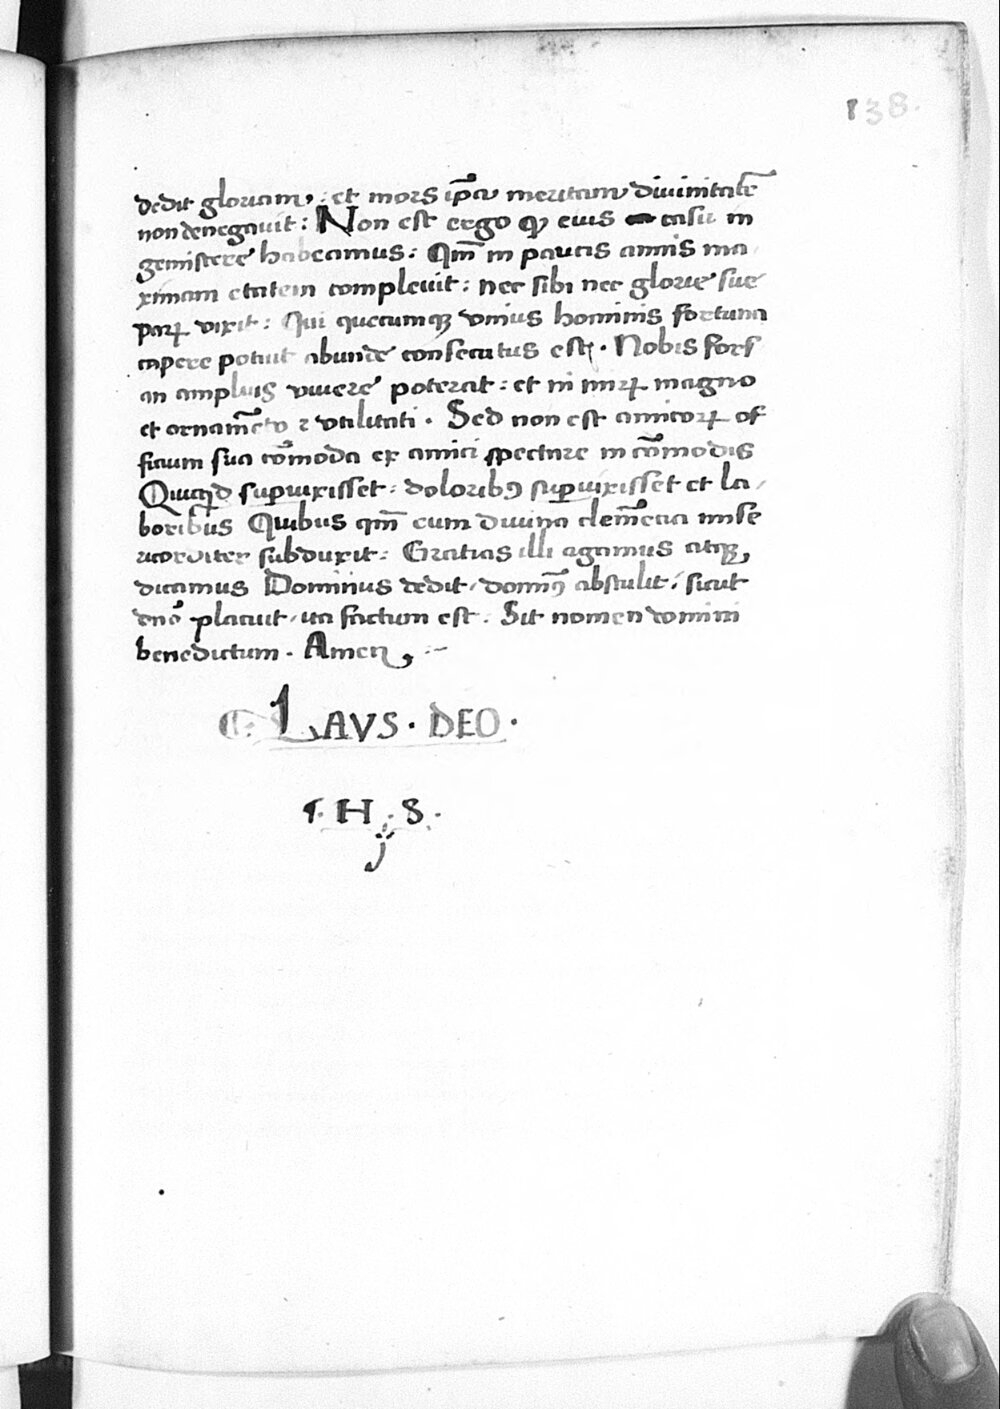 138.
dedit gloriam, : et mors ip̃a meritam diuinitatẽ
non denegauit : Non est ergo qp eius casu in
gemiscere habeamus : Qm̃ in paucis annis ma
ximam etatem compleuit : nec sibi nec glorie sue
parꝝ vixit : Qui quecumqꝫ vnius hominis fortuna
capere potuit abunde consecutus est . Nobis fors
an amplius viuere poterat : et ni mirꝝ magno
et ornamẽto ⁊ vtilitati . Sed non est amicorꝝ of
ficium sua cõmoda ex amici spectare incõmodis
Quicqͥd supuixisset : doloribꝰ supuixisset et la
boribus Quibus qm̃ eum diuina clemẽcia mise
ricorditer subduxit : Gratias illi agamus atqꝫ
dicamus Dominus dedit . domĩꝰ abstulit : sicut
dño placuit . ita factum est : Sit nomen domini
benedictum . Amen ,
LAVS . DEO .
. H . S .